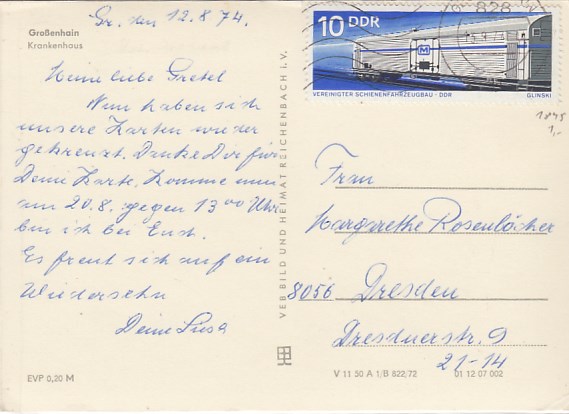 Gr. den 12.8.74.
Großenhain
Krankenhaus
Meine liebe Gretel
Nun haben sich
unsere Karten wieder
gekreuzt. Danke Dir für
Deine Karte. Komme nun
am 20.8. gegen 13 00 Uhr
bin ich bei Euch.
Es freut sich auf ein
Wiedersehn
Deine Liesa
EVP 0,20 M
VEB BILD UND HEIMAT REICHENBACH i. V.
10 DDR
828
M
VEREINIGTER SCHIENENFAHRZEUGBAU - DDR
GLINSKI
1848
1,-
Frau
Margarethe Rosenlöcher
8056 Dresden
Dresdnerstr. 9
21-14
V 11 50 A 1/B 822/72
01 12 07 002